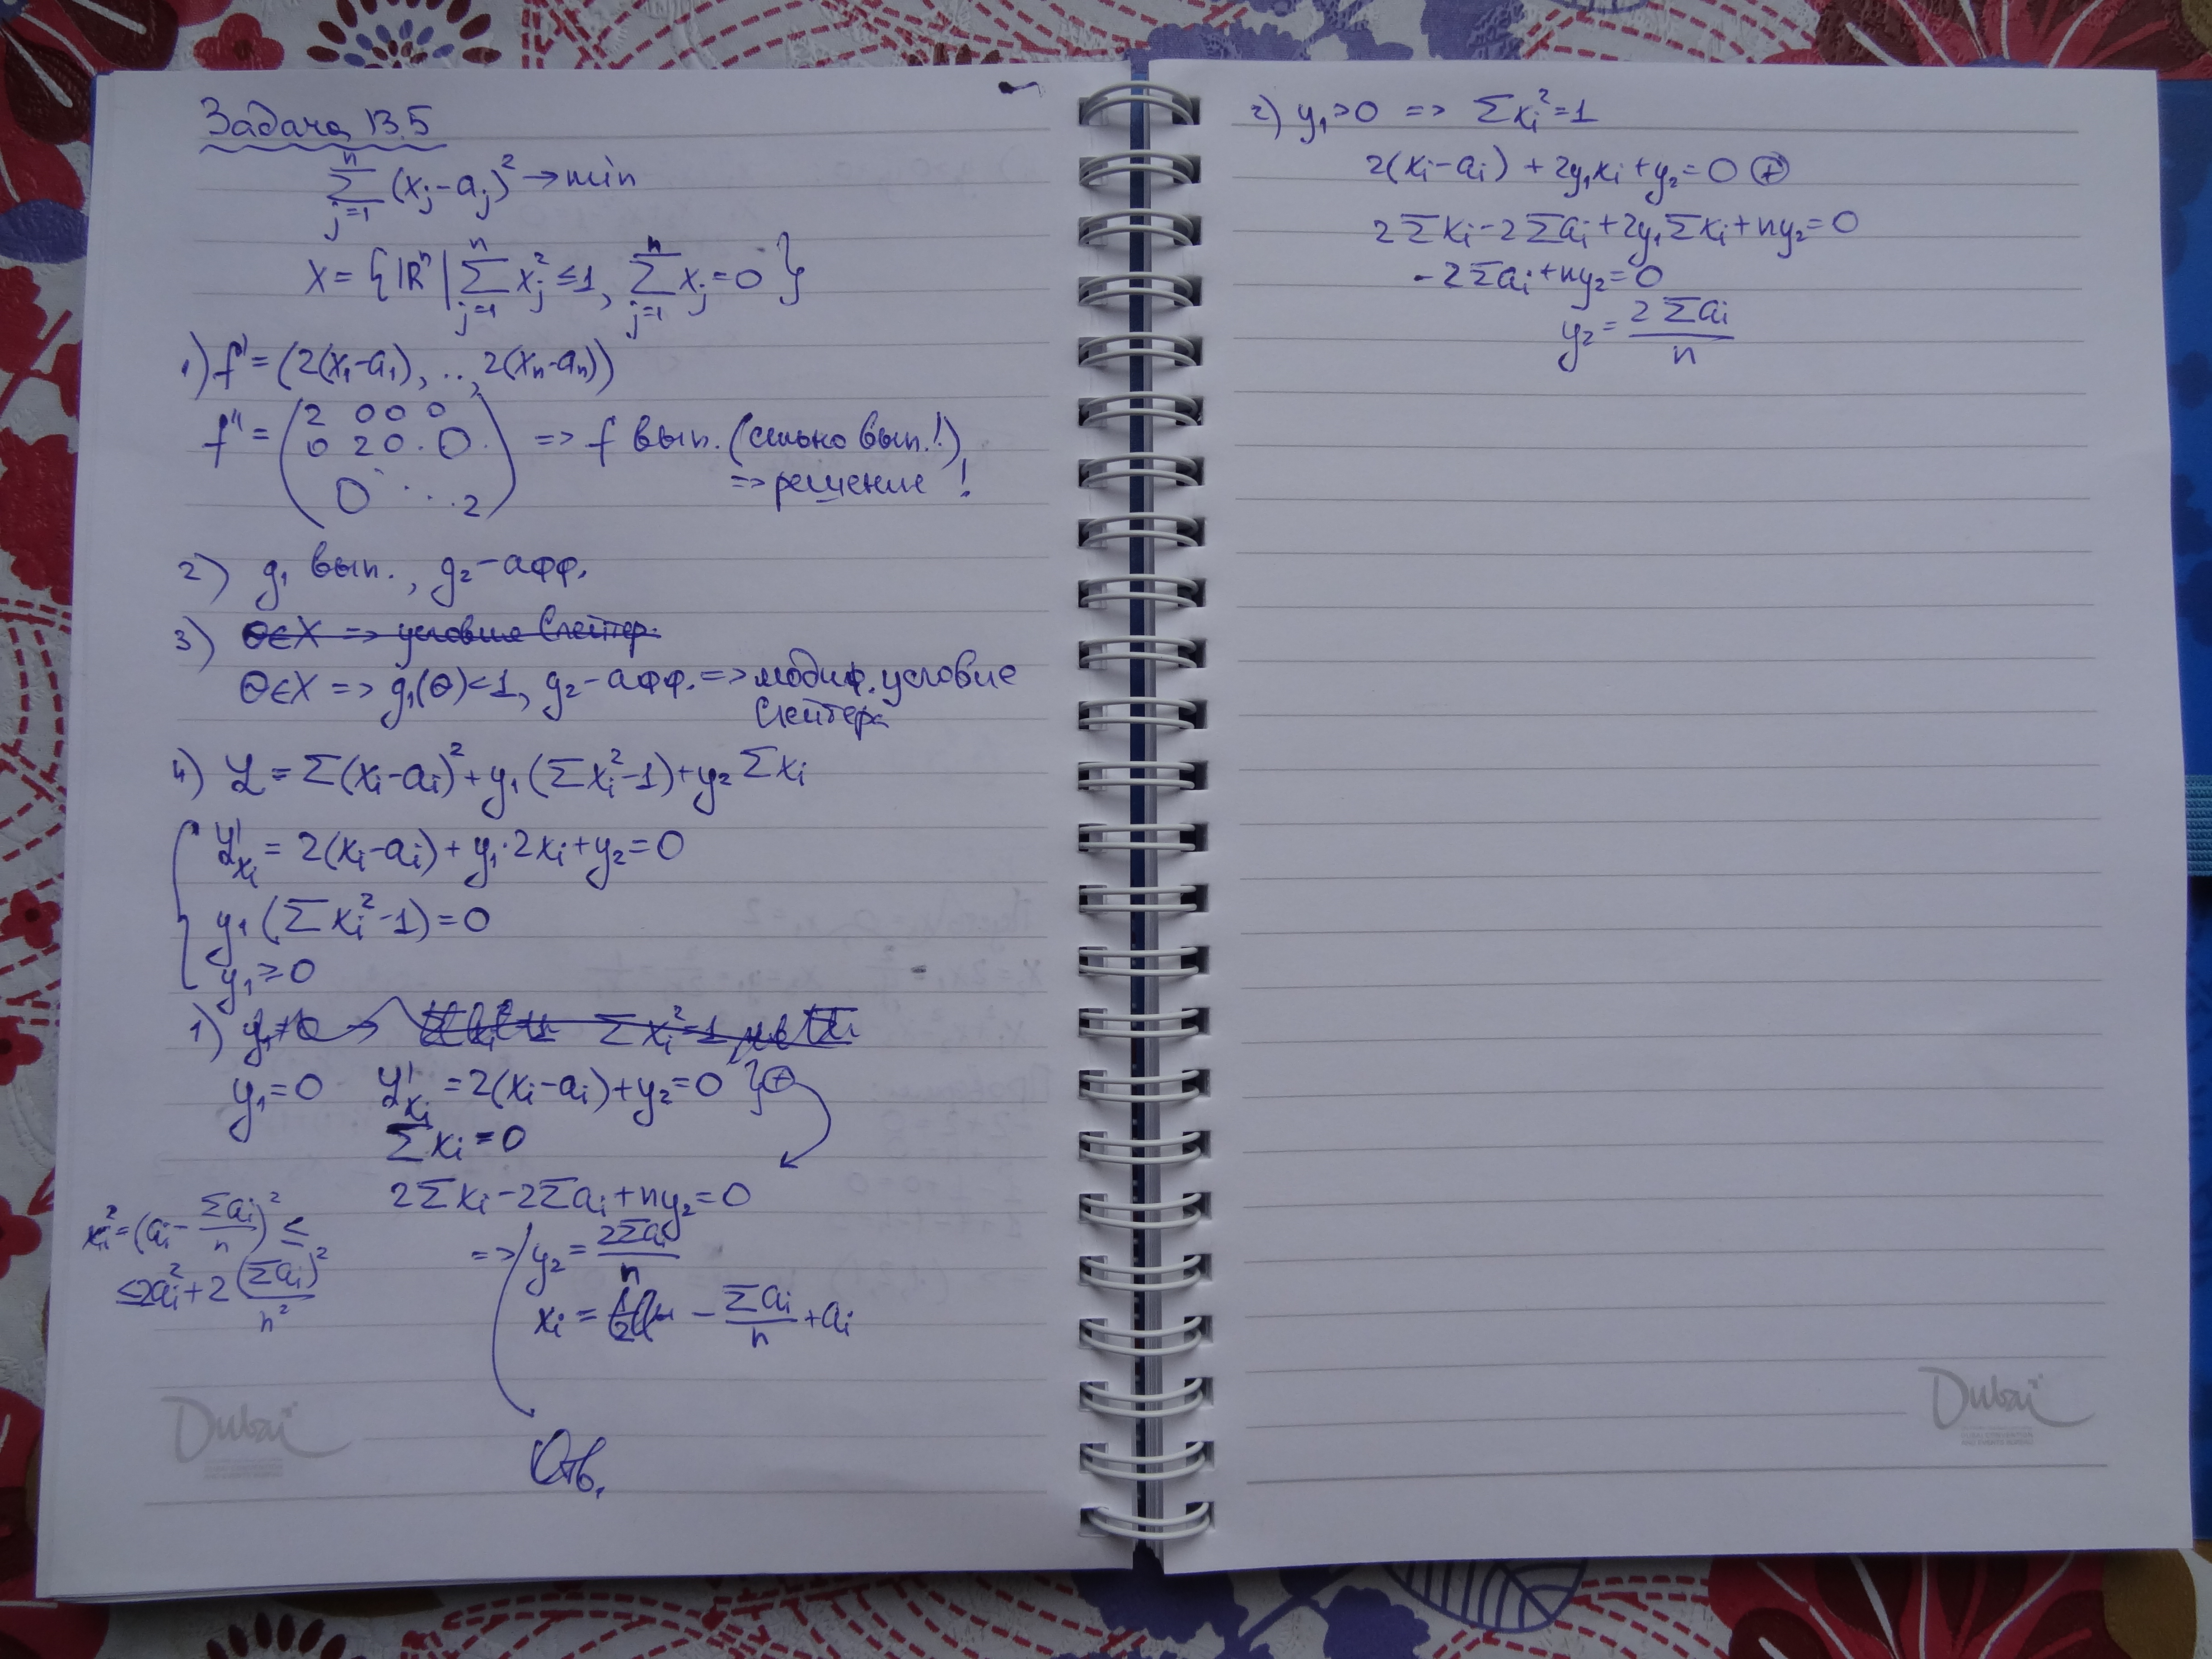 Задача 13.5
∑_{j=1}^{n} (x_j - a_j)² → min
X = {ℝⁿ | ∑_{j=1}^{n} x_j² ≤ 1, ∑_{j=1}^{n} x_j = 0}
1) f' = (2(x₁-a₁), .., 2(xₙ-aₙ))
f'' = (2 0 0 0
0 2 0 . 0
0 . . . 2) => f вып. (сильно вып.!)
=> решение !
2) g₁ вып., g₂ - афф.
3) Θ∈X => условие Слейтер.
Θ∈X => g₁(Θ)<1, g₂ - афф. => модиф. условие
Слейтера
4) ℒ = ∑(x_i - a_i)² + y₁(∑x_i² - 1) + y₂∑x_i
ℒ'_{x_i} = 2(x_i - a_i) + y₁·2x_i + y₂ = 0
y₁(∑x_i² - 1) = 0
y₁ ≥ 0
1) ∑x_i² = 1
y₁ = 0 ℒ'_{x_i} = 2(x_i - a_i) + y₂ = 0 } ⊕
∑x_i = 0
2∑x_i - 2∑a_i + ny₂ = 0
=> y₂ = 2∑a_i / n
x_i = - ∑a_i / n + a_i
x_i² = (a_i - ∑a_i / n)² ≤
≤ 2a_i² + 2 (∑a_i)² / n²
Отв.
2) y₁ > 0 => ∑x_i² = 1
2(x_i - a_i) + 2y₁x_i + y₂ = 0 ⊕
2∑x_i - 2∑a_i + 2y₁∑x_i + ny₂ = 0
- 2∑a_i + ny₂ = 0
y₂ = 2∑a_i / n
Dubai
Dubai